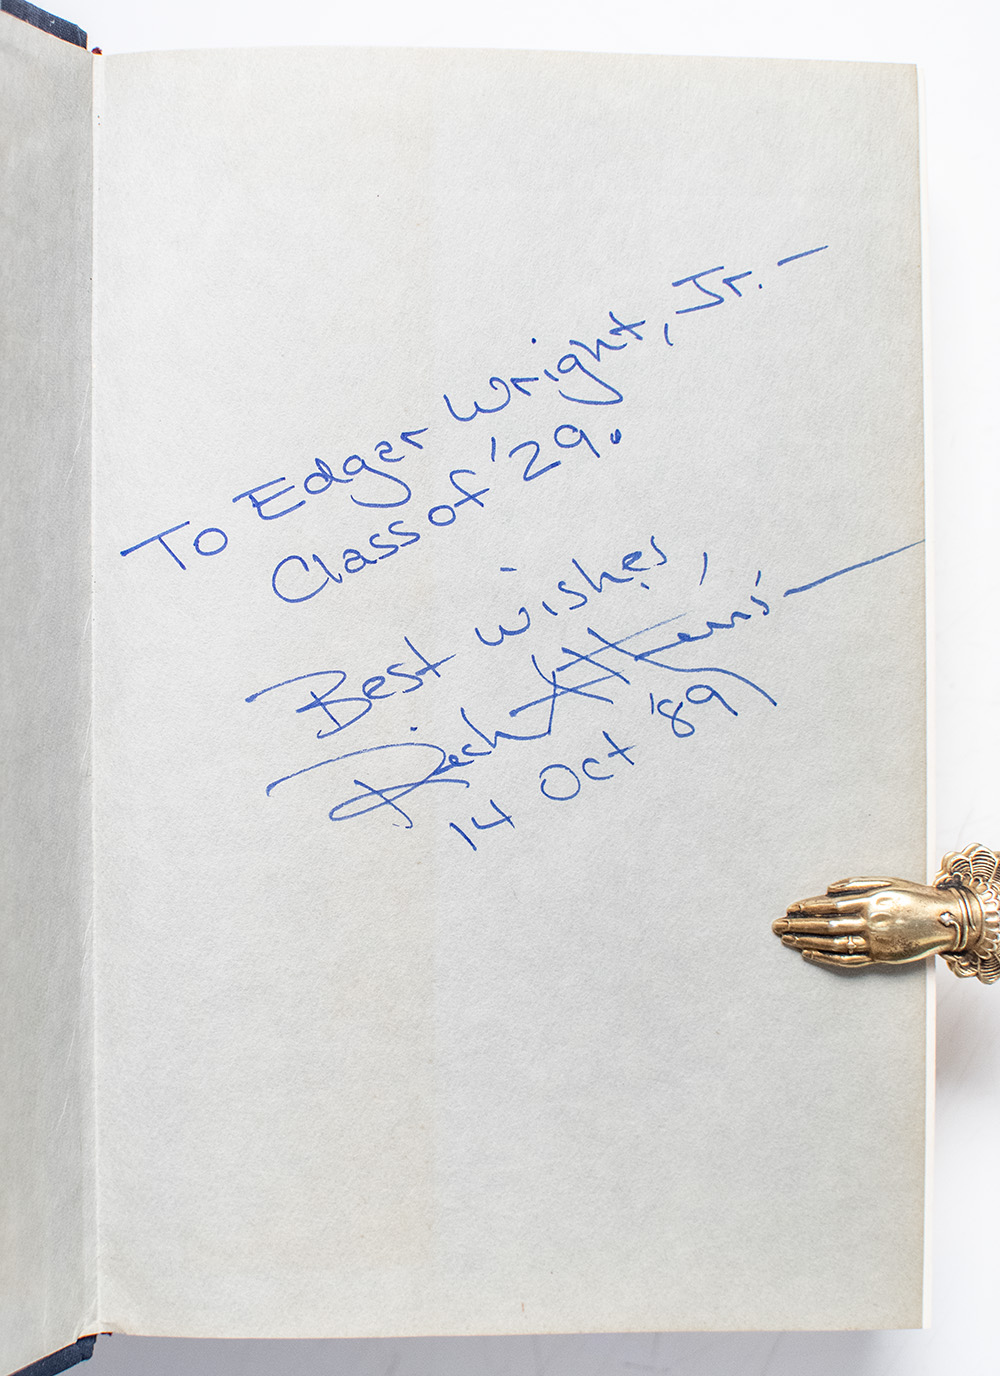 To Edgar Wright, Jr. –
Class of '29.
Best wishes,
Rick Atkinson
14 Oct '89